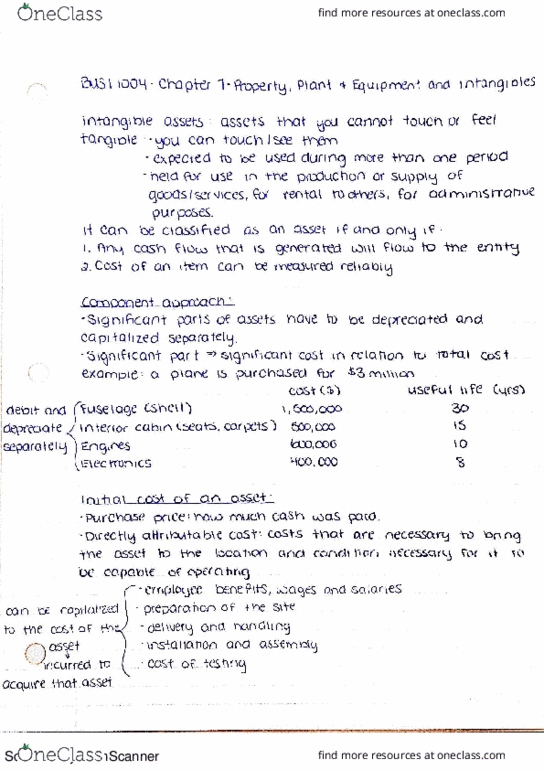 OneClass
find more resources at oneclass.com
BUSI 1004 - Chapter 7 - Property, Plant + Equipment and intangibles
intangible assets: assets that you cannot touch or feel
tangible · you can touch/see them
· expected to be used during more than one period
· held for use in the production or supply of
goods/services, for rental to others, for administrative
purposes.
it can be classified as an asset if and only if:
1. Any cash flow that is generated will flow to the entity
2. Cost of an item can be measured reliably
Component approach:
· Significant parts of assets have to be depreciated and
capitalized separately.
· Significant part ⇒ significant cost in relation to total cost
example: a plane is purchased for $3 million
cost ($) useful life (yrs)
debit and fuselage (shell) 1,500,000 30
depreciate interior cabin (seats, carpets) 500,000 15
separately Engines 600,000 10
Electronics 400,000 8
Initial cost of an asset:
· Purchase price: how much cash was paid.
· Directly attributable cost: costs that are necessary to bring
the asset to the location and condition necessary for it to
be capable of operating
· employee benefits, wages and salaries
can be capitalized · preparation of the site
to the cost of the · delivery and handling
asset · installation and assembly
incurred to · cost of testing
acquire that asset
OneClass Scanner
find more resources at oneclass.com